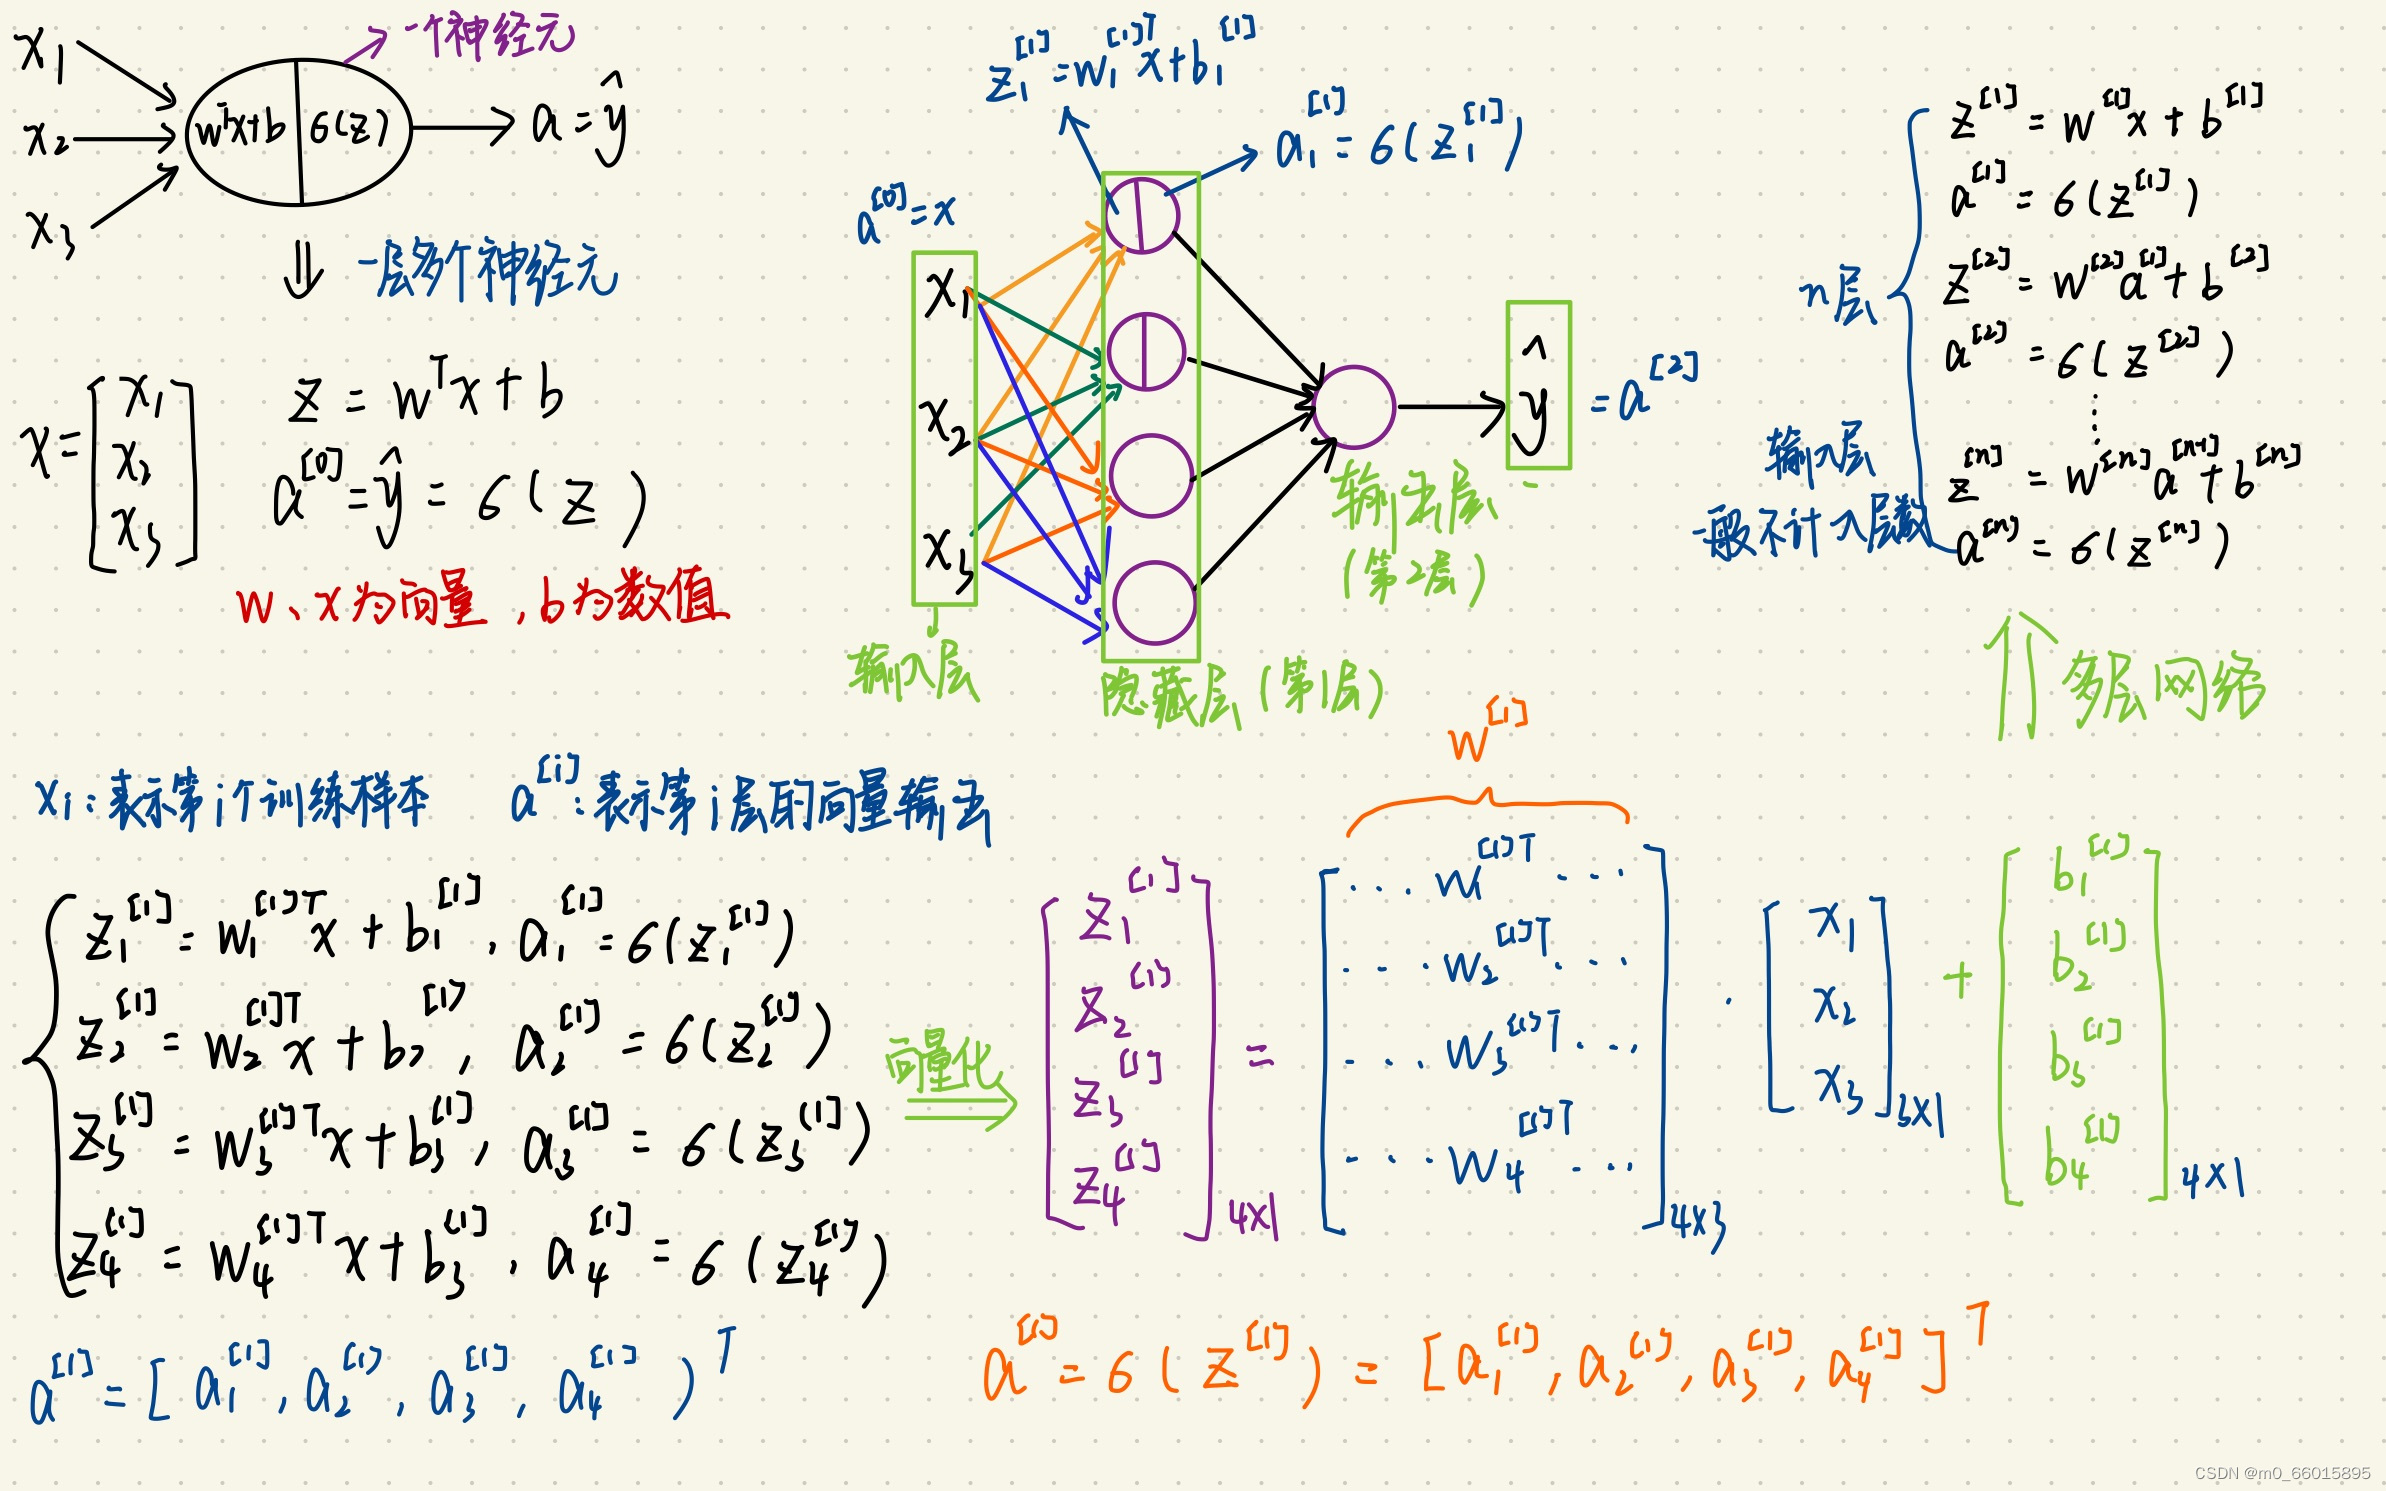 x₁
x₂
x₃
wᵀx+b | 6(z)
一个神经元
a = ŷ
一层多个神经元
x = [x₁ x₂ x₃]
z = wᵀx + b
a^[0] = ŷ = 6(z)
w、x为向量，b为数值
z₁^[1] = w₁^[1]T x + b₁^[1]
a₁^[1] = 6(z₁^[1])
a^[0] = x
x₁
x₂
x₃
输入层
隐藏层(第1层)
输出层
(第2层)
ŷ = a^[2]
n层
z^[1] = w^[1]x + b^[1]
a^[1] = 6(z^[1])
z^[2] = w^[2]a^[1] + b^[2]
a^[2] = 6(z^[2])
⋮
z^[n] = w^[n]a^[n-1] + b^[n]
a^[n] = 6(z^[n])
输入层
一般不计入层数
多层网络
xᵢ：表示第i个训练样本
a^[i]：表示第i层的向量输出
z₁^[1] = w₁^[1]T x + b₁^[1], a₁^[1] = 6(z₁^[1])
z₂^[1] = w₂^[1]T x + b₂^[1], a₂^[1] = 6(z₂^[1])
z₃^[1] = w₃^[1]T x + b₃^[1], a₃^[1] = 6(z₃^[1])
z₄^[1] = w₄^[1]T x + b₃^[1], a₄^[1] = 6(z₄^[1])
a^[1] = [a₁^[1], a₂^[1], a₃^[1], a₄^[1])ᵀ
向量化
w^[1]
[z₁^[1] z₂^[1] z₃^[1] z₄^[1]] 4x1
=
[... w₁^[1]T ...
... w₂^[1]T ...
... w₃^[1]T ...
... w₄^[1]T ...] 4x3
·
[x₁ x₂ x₃] 3x1
+
[b₁^[1] b₂^[1] b₃^[1] b₄^[1]] 4x1
a^[1] = 6(z^[1]) = [a₁^[1], a₂^[1], a₃^[1], a₄^[1]]ᵀ
CSDN @m0_66015895